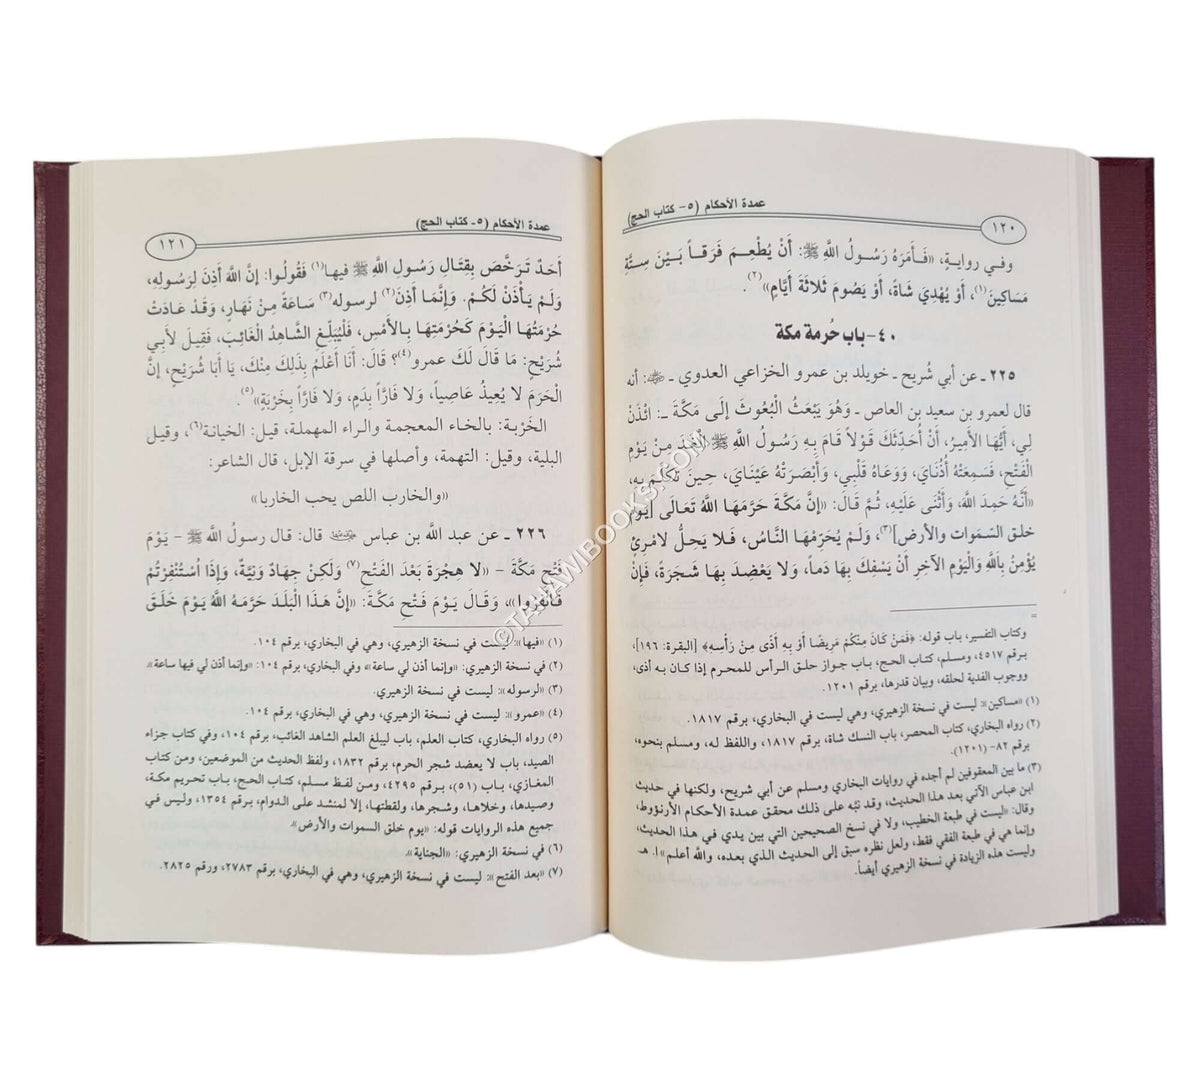 عمدة الأحكام (٥- كتاب الحج)
١٢٠
وفي روايةٍ، «فَأَمَرَهُ رَسُولُ اللَّهِ ﷺ: أَنْ يُطْعِمَ فَرَقاً بَيْنَ سِتَّةِ
مَسَاكِينَ(١)، أَوْ يُهْدِيَ شَاةً، أَوْ يَصُومَ ثَلاثَةَ أَيَّامٍ»(٢).
٤٠- باب حُرمة مكة
٢٢٥ ـ عن أبي شُريح ـ خويلد بن عمرو الخزاعي العدوي ـ رضي الله عنه: أنه
قال لعمرو بن سعيد بن العاص ـ وَهُوَ يَبْعَثُ الْبُعُوثَ إلَى مَكَّةَ ـ: ائْذَنْ
لِي، أَيُّهَا الأَمِيرُ، أَنْ أُحَدِّثَكَ قَوْلاً قَامَ بِهِ رَسُولُ اللَّهِ ﷺ الْغَدَ مِنْ يَوْمِ
الْفَتْحِ، فَسَمِعَتْهُ أُذُنَايَ، وَوَعَاهُ قَلْبِي، وَأَبْصَرَتْهُ عَيْنَايَ، حِينَ تَكَلَّمَ بِهِ،
«أَنَّهُ حَمِدَ اللَّهَ، وَأَثْنَى عَلَيْهِ، ثُمَّ قَالَ: «إنَّ مَكَّةَ حَرَّمَهَا اللَّهُ تَعَالَى [يَوْمَ
خلق السَمَوات والأرض](٣)، وَلَمْ يُحَرِّمْهَا النَّاسُ، فَلا يَحِلُّ لامْرِئٍ
يُؤْمِنُ بِاَللَّهِ وَالْيَوْمِ الآخِرِ أَنْ يَسْفِكَ بِهَا دَماً، وَلا يَعْضِدَ بِهَا شَجَرَةً، فَإِنْ
=
وكتاب التفسير، باب قوله: ﴿فَمَنْ كَانَ مِنكُمْ مَرِيضًا أَوْ بِهِ أَذًى مِنْ رَأْسِهِ﴾ [البقرة: ١٩٦]،
برقم ٤٥١٧، ومسلم، كتاب الحج، باب جواز حلق الرأس للمحرم إذا كان به أذى،
ووجوب الفدية لحلقه، وبيان قدرها، برقم ١٢٠١.
(١) «مساكين»: ليست في نسخة الزهيري، وهي ليست في البخاري، برقم ١٨١٧.
(٢) رواه البخاري، كتاب المحصر، باب النسك شاة، برقم ١٨١٧، واللفظ له، ومسلم بنحوه،
برقم ٨٢- (١٢٠١).
(٣) ما بين المعقوفين لم أجده في روايات البخاري ومسلم عن أبي شريح، ولكنها في حديث
ابن عباس الآتي بعد هذا الحديث، وقد نبّه على ذلك محقق عمدة الأحكام الأرنؤوط،
وقال: «ليست في طبعة الخطيب، ولا في نسخ الصحيحين التي بين يدي في هذا الحديث،
وإنما هي في طبعة الفقي فقط، ولعل نظره سبق إلى الحديث الذي بعده، والله أعلم» ا. هـ
وليست هذه الزيادة في نسخة الزهيري أيضاً.
عمدة الأحكام (٥- كتاب الحج)
١٢١
أَحَدٌ تَرَخَّصَ بِقِتَالِ رَسُولِ اللَّهِ ﷺ فيها(١) فَقُولُوا: إنَّ اللَّهَ أَذِنَ لِرَسُولِهِ،
وَلَمْ يَأْذَنْ لَكُمْ. وَإِنَّمَا أَذِنَ(٢) لرسوله(٣) سَاعَةً مِنْ نَهَارٍ، وَقَدْ عَادَتْ
حُرْمَتُهَا الْيَوْمَ كَحُرْمَتِهَا بِالأَمْسِ، فَلْيُبَلِّغِ الشَّاهِدُ الْغَائِبَ، فَقِيلَ لأَبِي
شُرَيْحٍ: مَا قَالَ لَكَ عمرو(٤)؟ قَالَ: أَنَا أَعْلَمُ بِذَلِكَ مِنْكَ، يَا أَبَا شُرَيْحٍ، إنَّ
الْحَرَمَ لا يُعِيذُ عَاصِياً، وَلا فَارّاً بِدَمٍ، وَلا فَارّاً بِخَرْبَةٍ»(٥).
الخَرْبة: بالخاء المعجمة والراء المهملة، قيل: الخيانة(٦)، وقيل
البلية، وقيل: التهمة، وأصلها في سرقة الإبل، قال الشاعر:
«والخارب اللص يحب الخاربا»
٢٢٦ ـ عن عبد اللَّه بن عباس رضي الله عنهما قال: قال رسول اللَّه ﷺ - يَوْمَ
فَتْحِ مَكَّةَ - «لا هِجْرَةَ بَعْدَ الفَتْحِ(٧) وَلَكِنْ جِهَادٌ وَنِيَّةٌ، وَإِذَا اُسْتُنْفِرْتُمْ
فَانْفِرُوا»، وَقَالَ يَوْمَ فَتْحِ مَكَّةَ: «إنَّ هَذَا الْبَلَدَ حَرَّمَهُ اللَّهُ يَوْمَ خَلَقَ
(١) «فيها»: ليست في نسخة الزهيري، وهي في البخاري، برقم ١٠٤.
(٢) في نسخة الزهيري: «وإنما أذن لي ساعة» وفي البخاري، برقم ١٠٤: «وإنما أذن لي فيها ساعة».
(٣) «لرسوله»: ليست في نسخة الزهيري.
(٤) «عمرو»: ليست في نسخة الزهيري، وهي في البخاري، برقم ١٠٤.
(٥) رواه البخاري، كتاب العلم، باب ليبلغ العلم الشاهد الغائب، برقم ١٠٤، وفي كتاب جزاء
الصيد، باب لا يعضد شجر الحرم، برقم ١٨٣٢، ولفظ الحديث من الموضعين، ومن كتاب
المغازي، باب (٥١)، برقم ٤٢٩٥، ومن لفظ مسلم، كتاب الحج، باب تحريم مكة،
وصيدها، وخلاها، وشجرها، ولقطتها، إلا لمنشد على الدوام، برقم ١٣٥٤، وليس في
جميع هذه الروايات قوله: «يوم خلق السموات والأرض».
(٦) في نسخة الزهيري: «الجناية».
(٧) «بعد الفتح»: ليست في نسخة الزهيري، وهي في البخاري، برقم ٢٧٨٣، ورقم ٢٨٢٥.
©TAHAWIBOOKS.COM